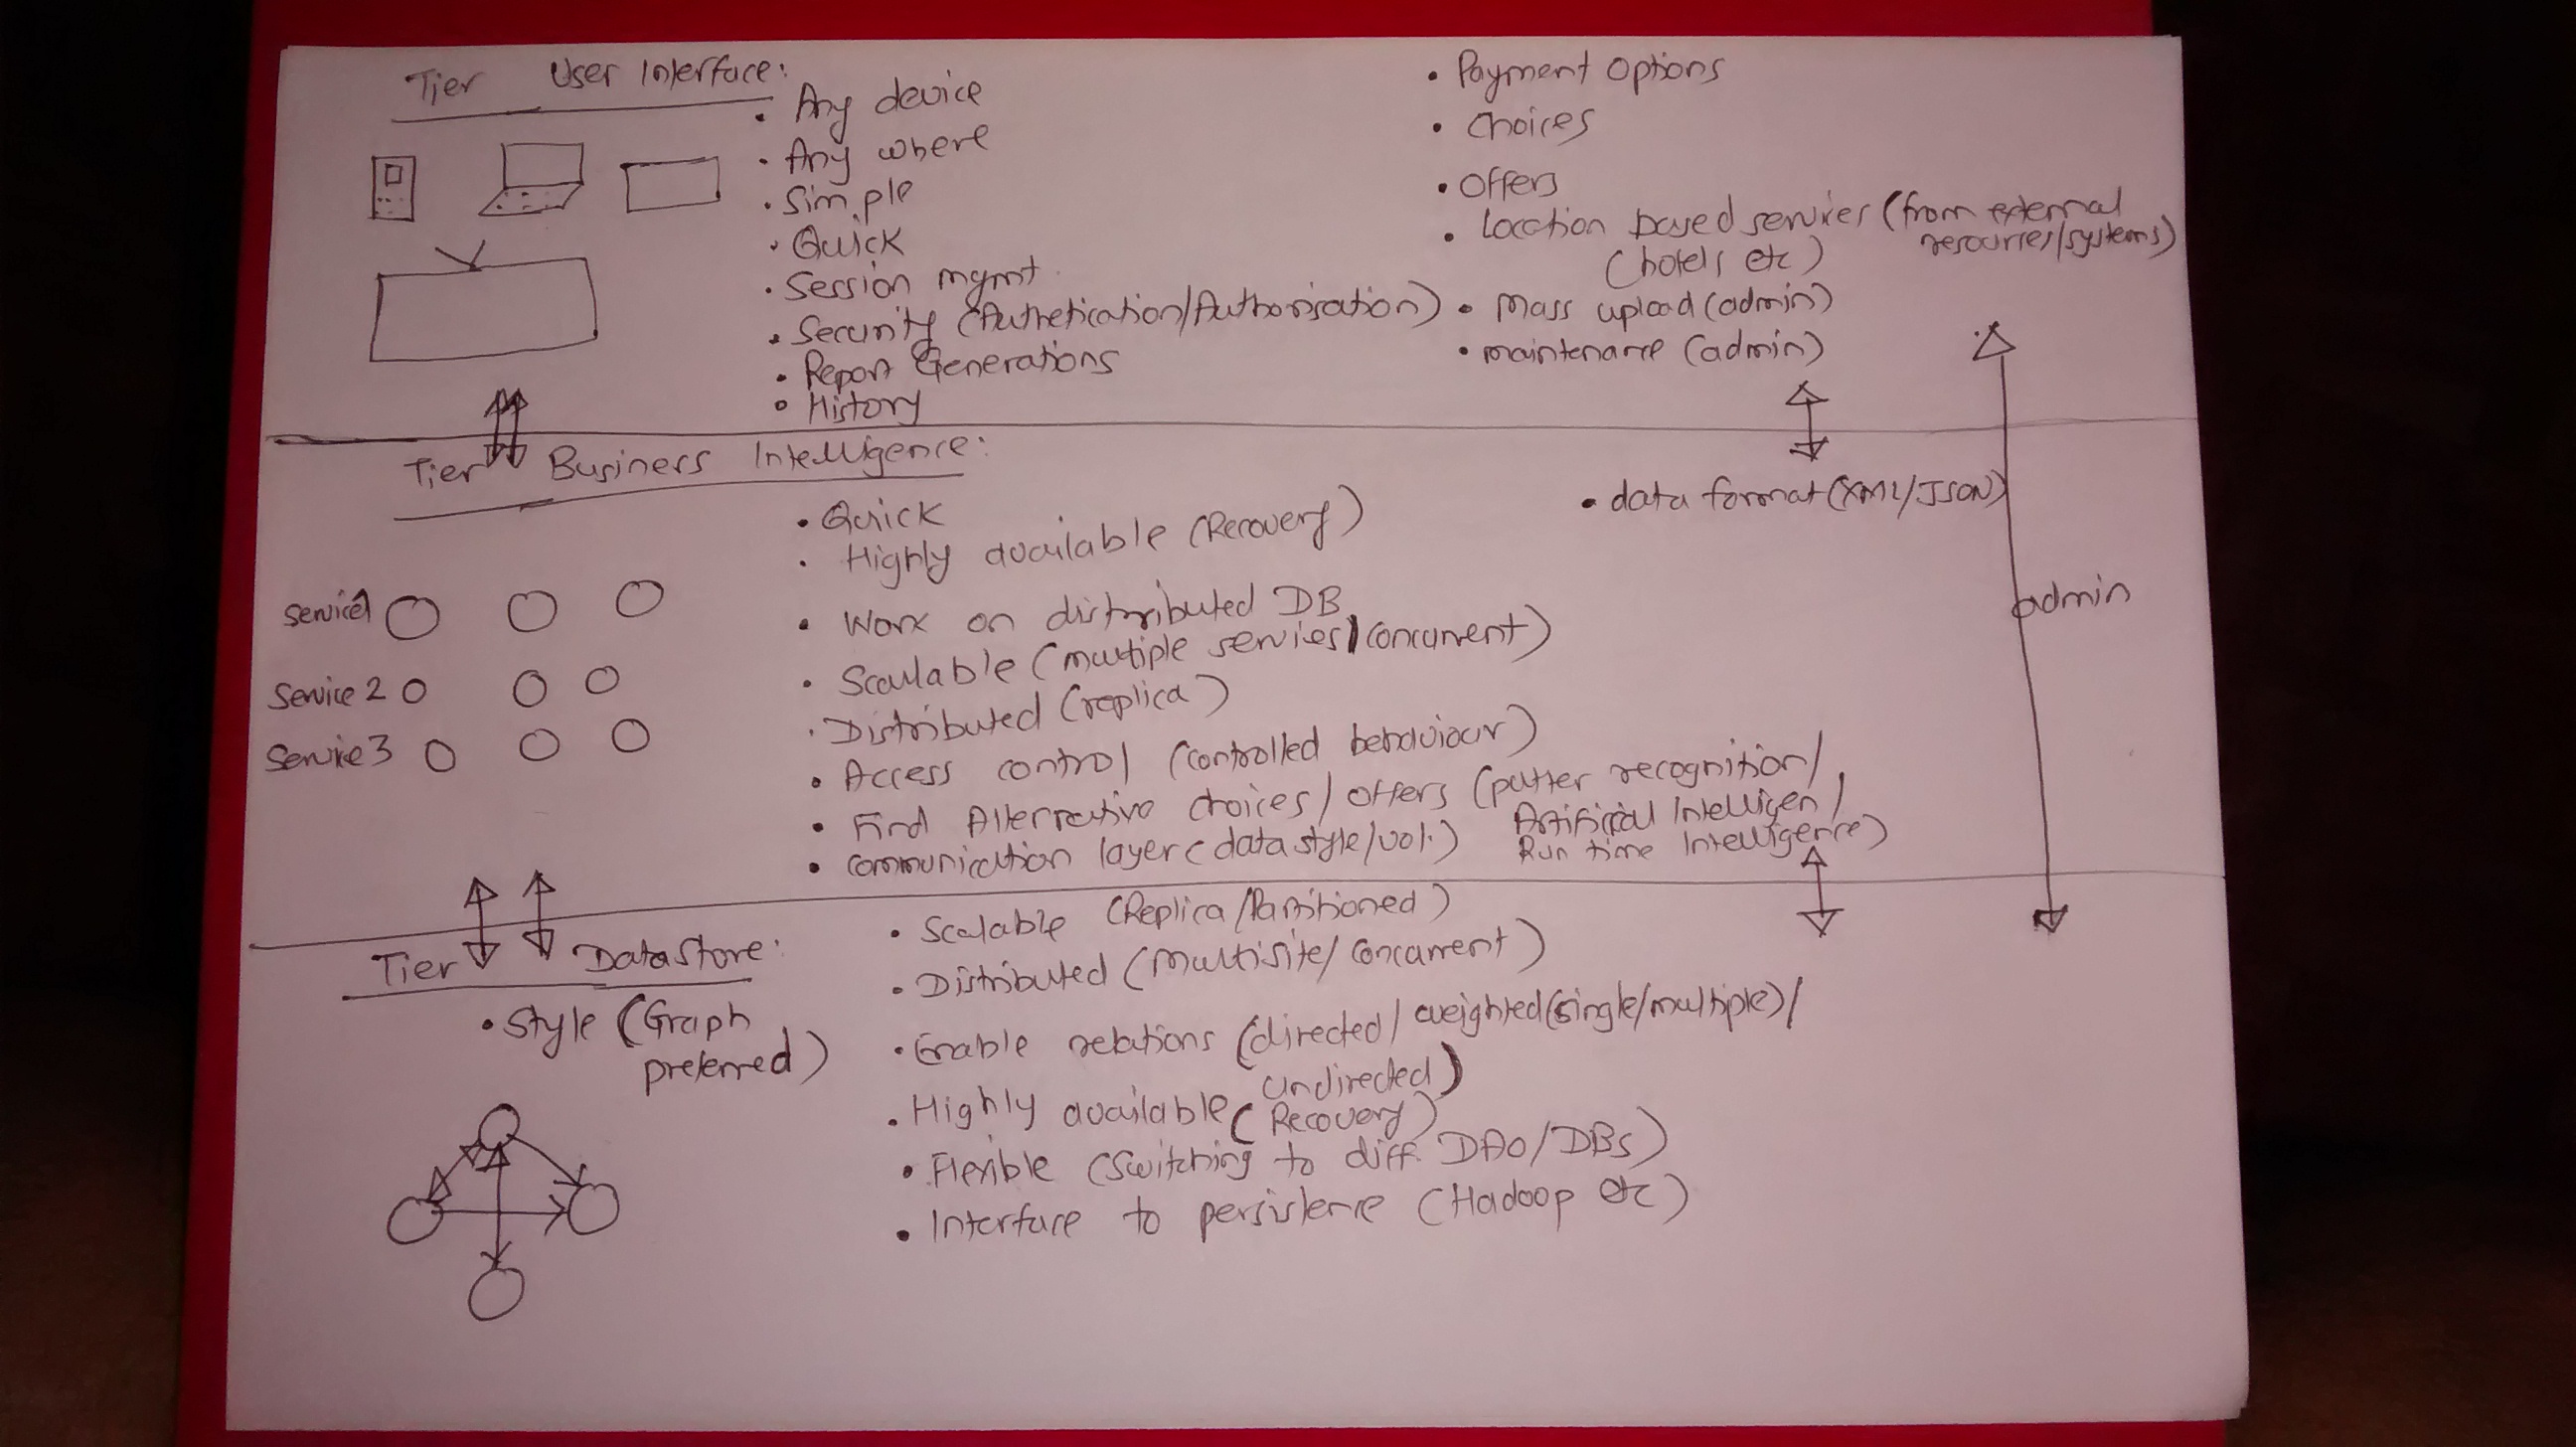 Tier User Interface:
• Any device
• Any where
• Simple
• Quick
• Session mgmt.
• Security (Authetication/Authorisation)
• Report Generations
• History
• Payment Options
• Choices
• Offers
• Location based services (from external
resources/systems)
(hotels etc)
• Mass upload (admin)
• maintenance (admin)
Tier Business Intelligence:
• Quick
• Highly available (Recovery)
• Work on distributed DB
• Scalable (multiple services/concurrent)
• Distributed (replica)
• Access control (controlled behaviour)
• Find Alternative choices/offers (patter recognition/
Artificial Intelligen/
Run time Intelligence)
• communication layer (data style/vol.)
• data format (XML/JSON)
admin
Service1
Service 2
Service 3
Tier DataStore:
• Style (Graph
preferred)
• Scalable (Replica/Partitioned)
• Distributed (Multisite/concurrent)
• Enable relations (directed/weighted(single/multiple)/
Undirected)
• Highly available (Recovery)
• Flexible (Switching to diff. DAO/DBs)
• Interface to persistence (Hadoop etc)